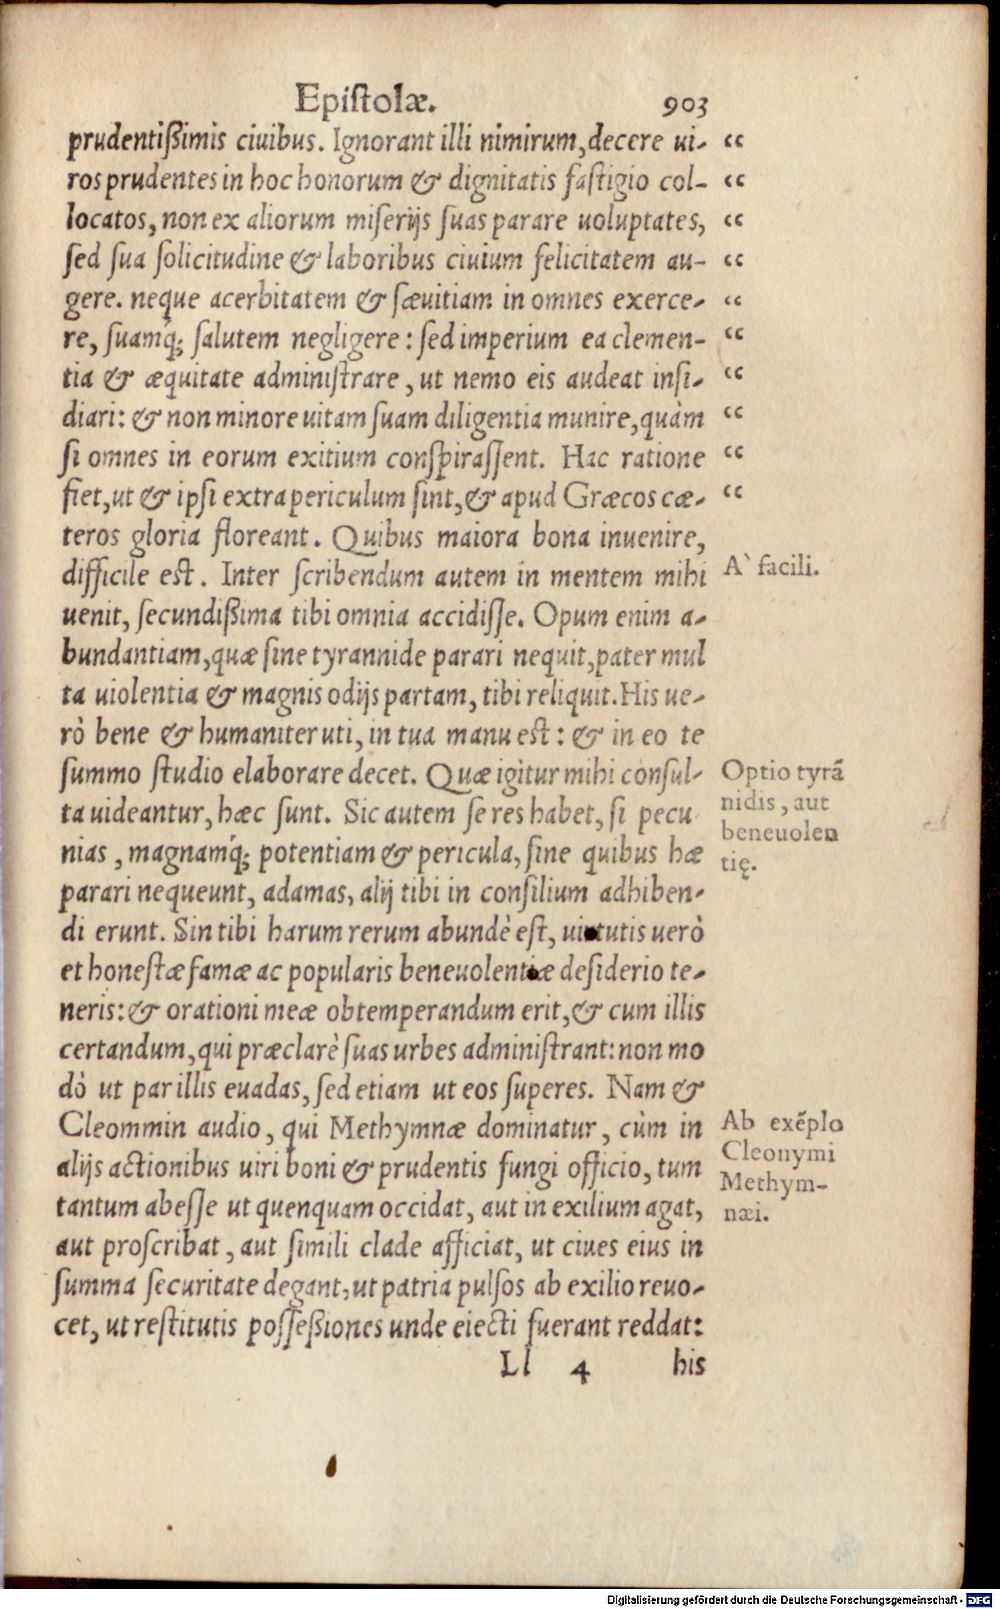 Epistolæ. 903
prudentißimis ciuibus. Ignorant illi nimirum, decere ui- “
ros prudentes in hoc honorum & dignitatis fastigio col- “
locatos, non ex aliorum miserijs suas parare uoluptates, “
sed sua solicitudine & laboribus ciuium felicitatem au- “
gere. neque acerbitatem & sæuitiam in omnes exerce- “
re, suamq́; salutem negligere: sed imperium ea clemen- “
tia & æquitate administrare, ut nemo eis audeat insi- “
diari: & non minore uitam suam diligentia munire, quàm “
si omnes in eorum exitium conspirassent. Hac ratione “
fiet, ut & ipsi extra periculum sint, & apud Græcos cæ- “
teros gloria floreant. Quibus maiora bona inuenire,
difficile est. Inter scribendum autem in mentem mihi
A` facili.
uenit, secundißima tibi omnia accidisse. Opum enim a-
bundantiam, quæ sine tyrannide parari nequit, pater mul
ta uiolentia & magnis odijs partam, tibi reliquit. His ue-
rò bene & humaniter uti, in tua manu est: & in eo te
summo studio elaborare decet. Quæ igitur mihi consul-
ta uideantur, hæc sunt. Sic autem se res habet, si pecu
nias, magnamq́; potentiam & pericula, sine quibus hæ
parari nequeunt, adamas, alij tibi in consilium adhiben-
Optio tyrã
nidis, aut
beneuolen
tię.
di erunt. Sin tibi harum rerum abundè est, uirtutis uerò
et honestæ famæ ac popularis beneuolentiæ desiderio te-
neris: & orationi meæ obtemperandum erit, & cum illis
certandum, qui præclarè suas urbes administrant: non mo
dò ut par illis euadas, sed etiam ut eos superes. Nam &
Cleommin audio, qui Methymnæ dominatur, cùm in
alijs actionibus uiri boni & prudentis fungi officio, tum
tantum abesse ut quenquam occidat, aut in exilium agat,
aut proscribat, aut simili clade afficiat, ut ciues eius in
Ab exẽplo
Cleonymi
Methym-
næi.
summa securitate degant, ut patria pulsos ab exilio reuo-
cet, ut restitutis posseßiones unde eiecti fuerant reddat:
Ll 4 his
Digitalisierung gefördert durch die Deutsche Forschungsgemeinschaft - DFG